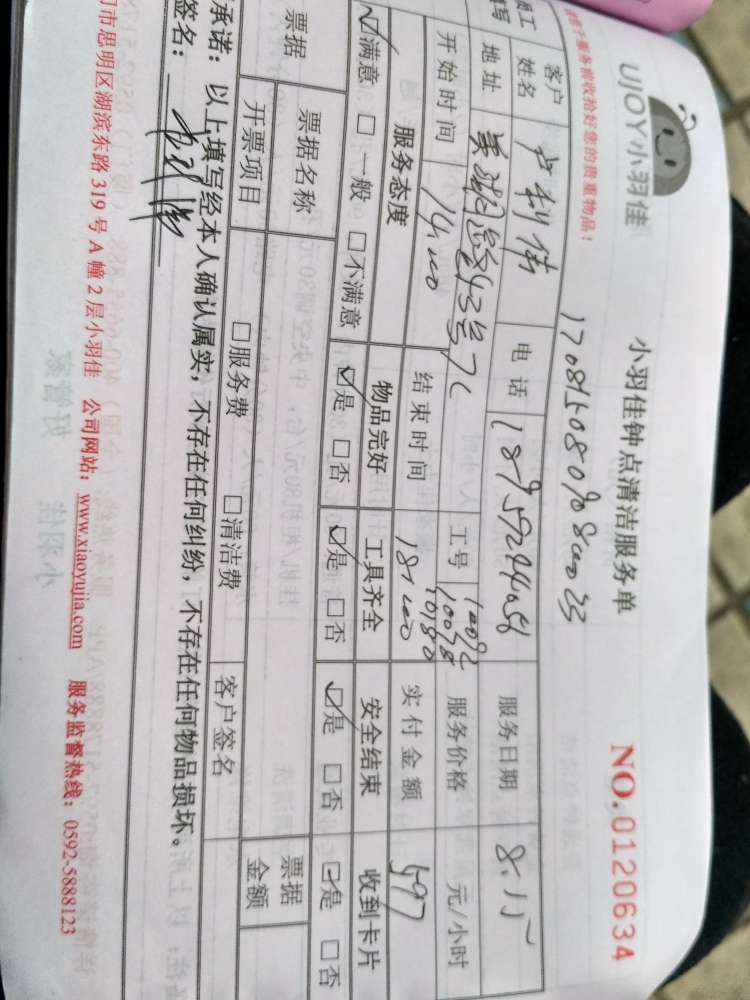 UJOY小羽佳
小羽佳钟点清洁服务单
NO.0120634
好您的贵重物品!
客户姓名 卢利佳 电话 服务日期 8.15
地址 美湖路43号7C 工号 服务价格 元/小时
开始时间 14:00 结束时间 18:00 实付金额
服务态度 物品完好 工具齐全 安全结束 收到卡片
☑满意 □一般 □不满意 ☑是 □否 ☑是 □否 ☑是 □否 ☑是 □否
票据 票据名称 票据金额
开票项目 □服务费 □清洁费 客户签名
承诺:以上填写经本人确认属实,不存在任何纠纷,不存在任何物品损坏。
签名:
门市思明区湖滨东路 319 号 A 幢 2 层小羽佳 公司网站:www.xiaoyujia.com 服务监督热线:0592-5888123